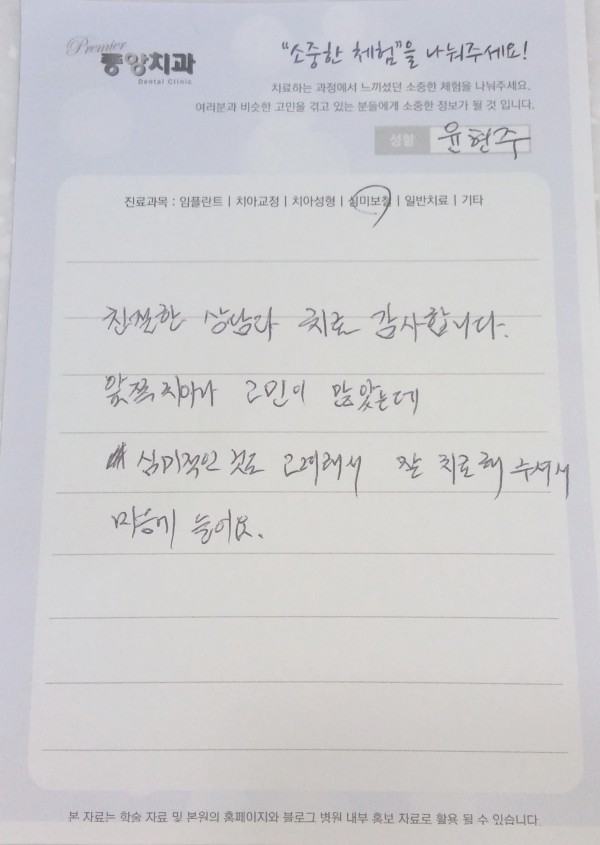 Premier
중앙치과
Dental Clinic
"소중한 체험"을 나눠주세요!
치료하는 과정에서 느끼셨던 소중한 체험을 나눠주세요.
여러분과 비슷한 고민을 겪고 있는 분들에게 소중한 정보가 될 것 입니다.
성함 윤현주
진료과목 : 임플란트 | 치아교정 | 치아성형 | 심미보철 | 일반치료 | 기타
친절한 상담과 치료 감사합니다.
앞쪽치아라 고민이 많았는데
심미적인 것도 고려해서 잘 치료해 주셔서
마음에 들어요.
본 자료는 학술 자료 및 본원의 홈페이지와 블로그 병원 내부 홍보 자료로 활용 될 수 있습니다.